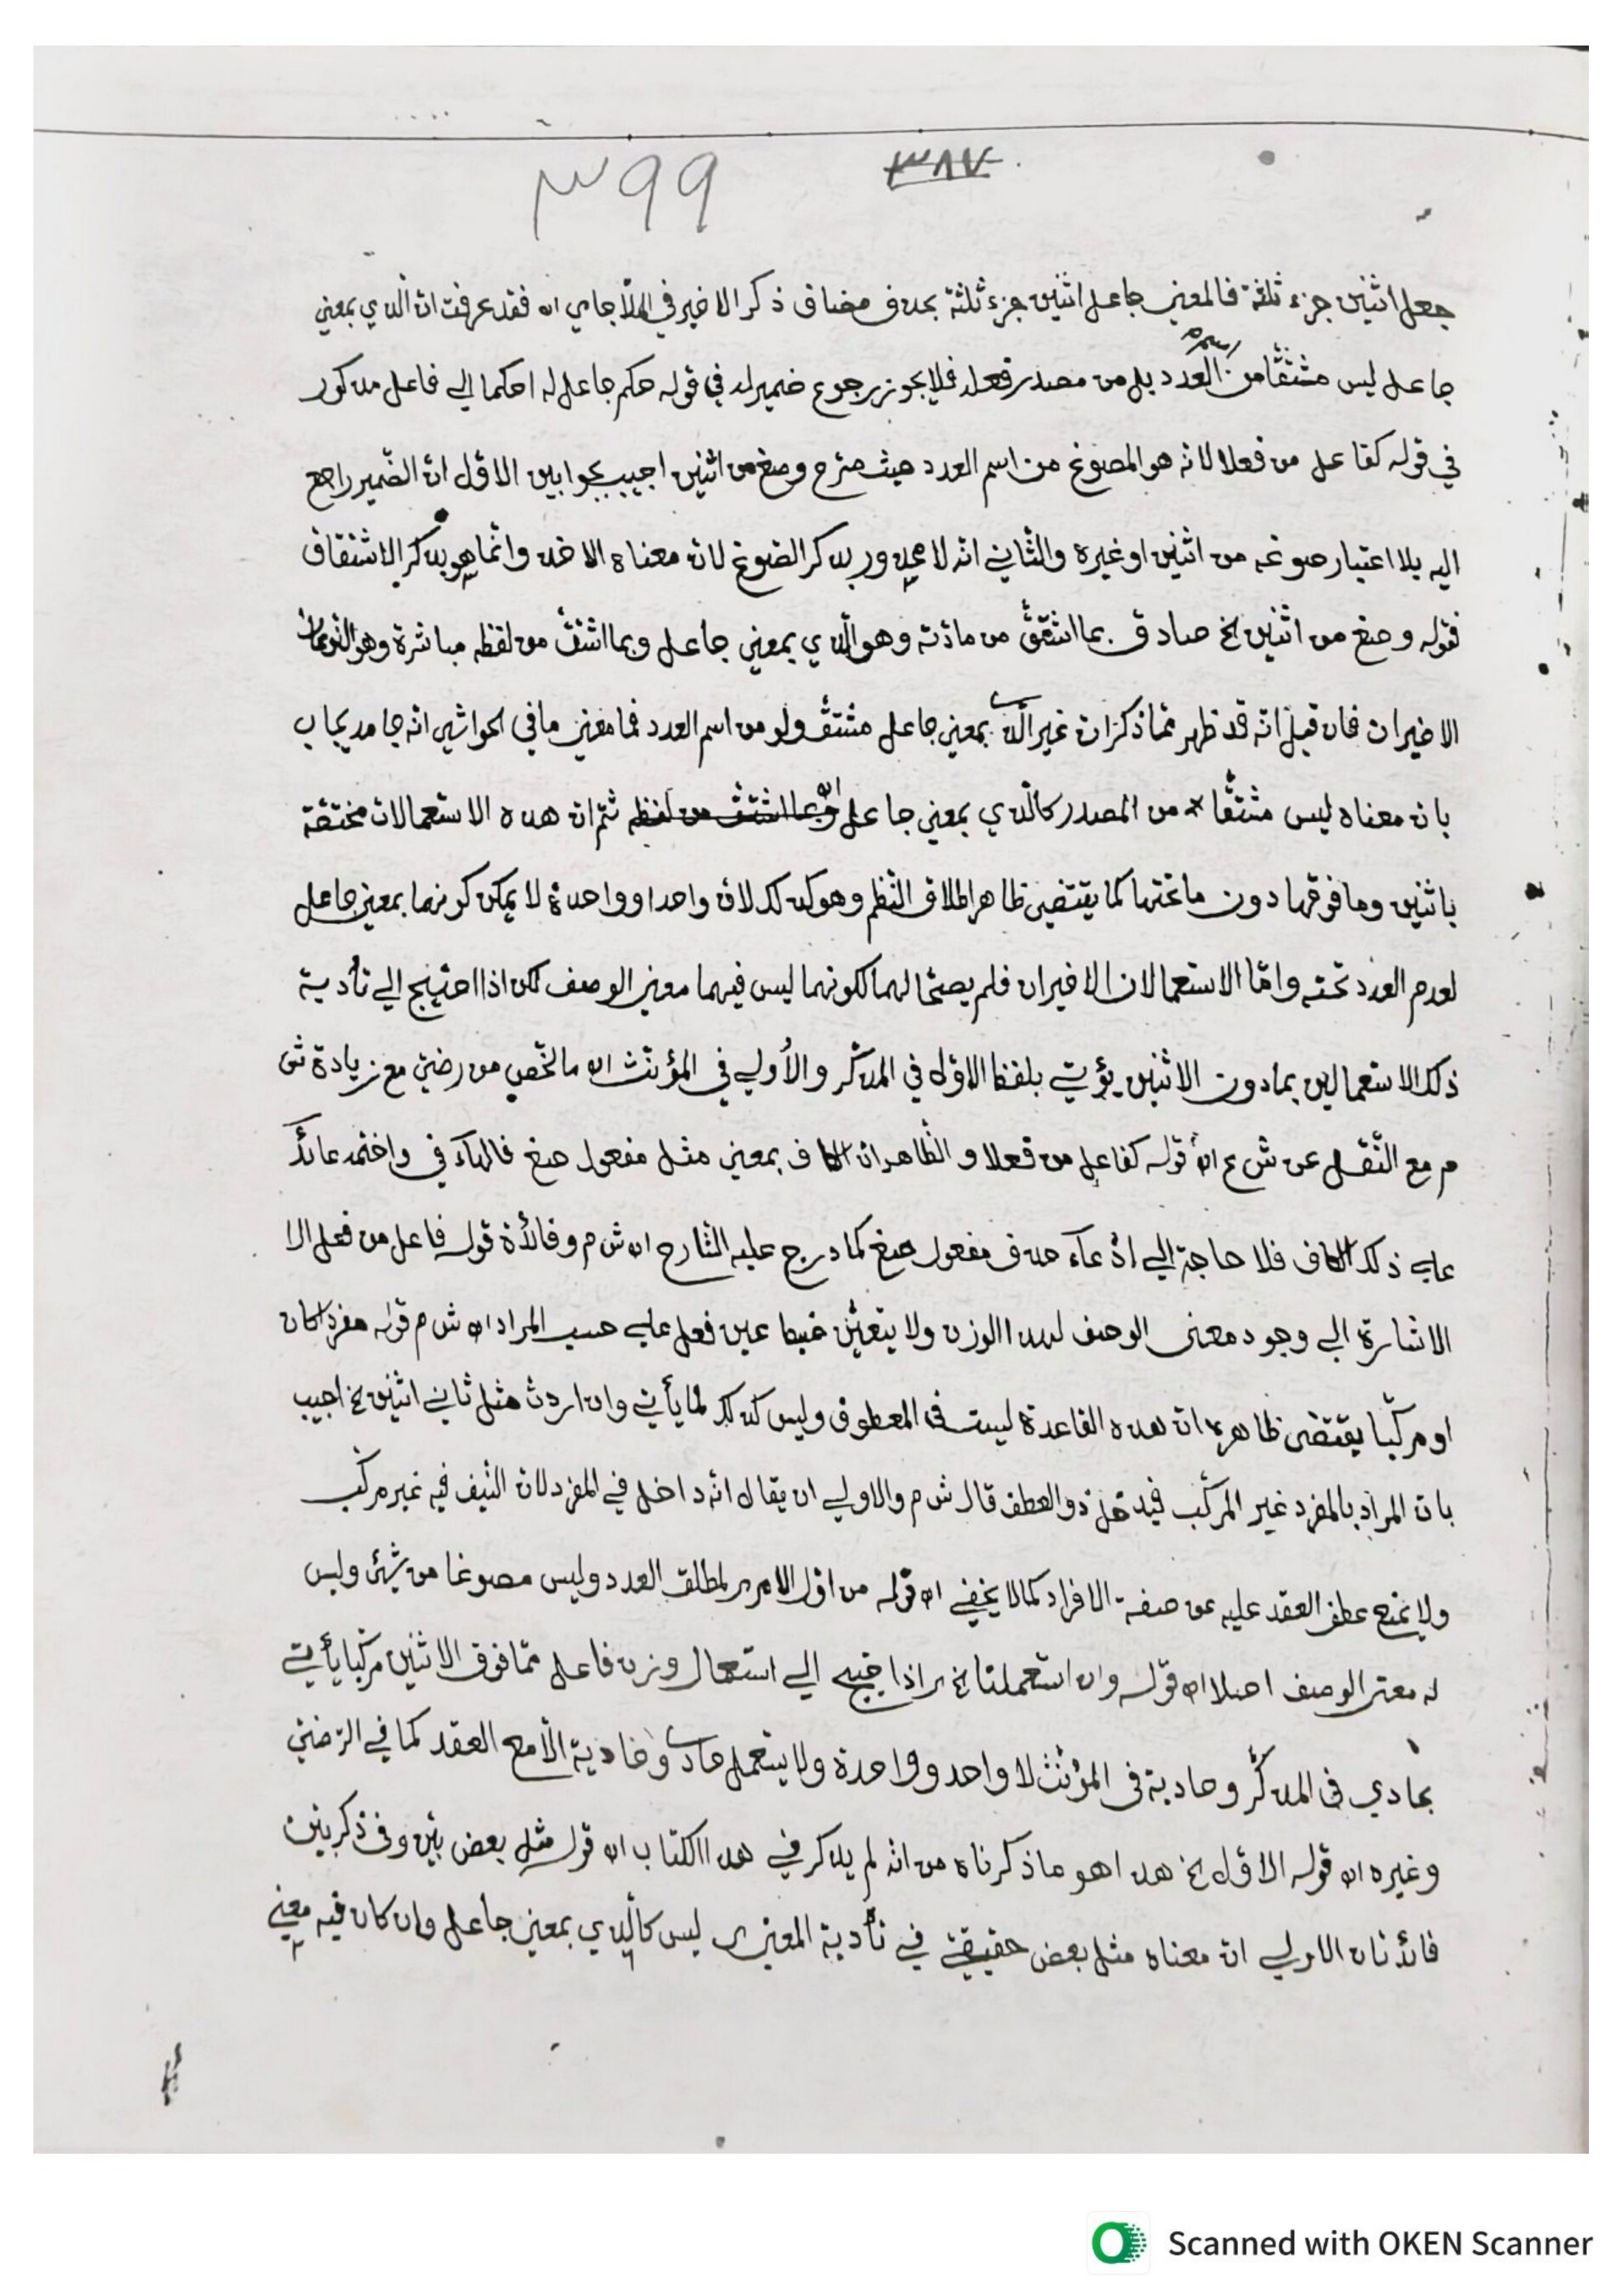 ٣٩٩ ٣٨٧
جعل اثنين جزء ثلثة فالمعني جاعل اثنين جزء ثلثة بحذف مضاف ذكر الاخير في الملّا جامي اه فقد عرفت انّ الّذي بمعني
جاعل ليس مشتقّا من اسم العدد بل من مصدر فعله فلا يجوز رجوع ضمير له في قوله حكم جاعل له احكما الي فاعل مذكور
في قوله كفاعل من فعلا لانّه هو المصوغ من اسم العدد حيث صرّح وصغ من اثنين اجيب بجوابين الاوّل انّ الضّمير راجع
اليه بلا اعتبار صوغه من اثنين او غيره والثّاني انّه لا محذور بذكر الصّوغ لانّ معناه الاخذ وانّما هو بذكر الاشتقاق
فقوله وصغ من اثنين الخ صادق بما اشتقّ من مادّته وهو الّذي بمعني جاعل وبما اشتقّ من لفظه مباشرة وهو النّوعان
الاخيران فان قيل انّه قد ظهر ممّا ذكر انّ غير الّذي بمعني جاعل مشتقّ ولو من اسم العدد فما معني ما في الحواشي انّه جامد يجاب
بانّ معناه ليس مشتقّا من المصدر كالّذي بمعني جاعل اه ثمّ انّ هذه الاستعمالات مختصّة
باثنين وما فوقها دون ما تحتها كما يقتضي ظاهر اطلاق النّظم وهو كذلك لانّ واحدا وواحدة لا يمكن كونهما بمعني جاعل
لعدم العدد تحته وامّا الاستعمالان الاخيران فلم يصحّا لهما لكونهما ليس فيهما معني الوصف لكن اذا احتيج الي تأدية
ذلك الاستعمالين بمادون الاثنين يؤتي بلفظ الاوّل في المذكّر والأولي في المؤنّث اه مالخّص من رضيّ مع زيادة ش
م مع النّقل عن ش ع اه قوله كفاعل من فعلا والظّاهر انّ الكاف بمعني مثل مفعول صغ فالهآء في واختمه عائد
علي ذلك الكاف فلا حاجة الي ادّعآء حذف مفعول صغ كما درج عليه الشّارح اه ش م وفائدة قوله فاعل من فعل الا
الاشارة الي وجود معني الوصف لهذا الوزن ولا يتعيّن ضبط عين فعل علي حسب المراد اه ش م قوله مفردا كان
او مركّبا يقتضي ظاهره انّ هذه القاعدة ليست في المعطوف وليس كذلك لما يأتي وان اردت مثل ثاني اثنين الخ اجيب
بانّ المراد بالمفرد غير المركّب فيدخل ذو العطف قال ش م والاولي ان يقال انّه داخل في المفرد لانّ النّيّف فيه غير مركّب
ولا يمنع عطف العقد عليه عن صفة الافراد كما لا يخفي اه قوله من اوّل الامر لمطلق العدد وليس مصوغا من شيئ وليس
له معني الوصف اصلا اه قوله وان استعملتا الخ اذا احتيج الي استعمال وزن فاعل ممّا فوق الاثنين مركّبا يأتي
بحادي في المذكّر وحادية في المؤنّث لا واحد وواحدة ولا يستعمل حادي وحادية الّا مع العقد كما في الرّضيّ
وغيره اه قوله الاوّل الخ هذا هو ما ذكرناه من انّه لم يذكر في هذا الكتاب اه قوله مثل بعض بيّن وفي ذكر بيّن
فائدتان الاولي انّ معناه مثل بعض حقيقيّ في تأدية المعني ليس كالّذي بمعني جاعل وان كان فيه معني
Scanned with OKEN Scanner